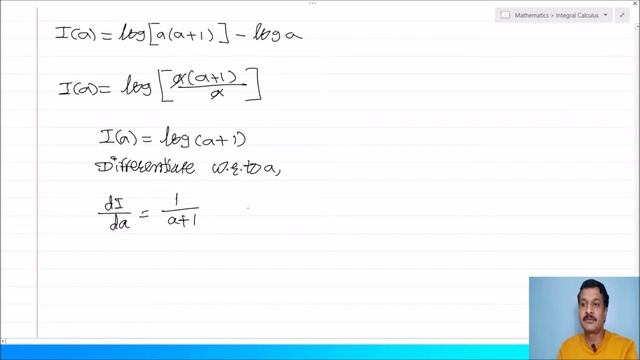 Mathematics > Integral Calculus
I(a) = log[a(a+1)] - log a
I(a) = log[a(a+1)/a]
I(a) = log(a+1)
Differentiate w.r.to a,
dI/da = 1/a+1